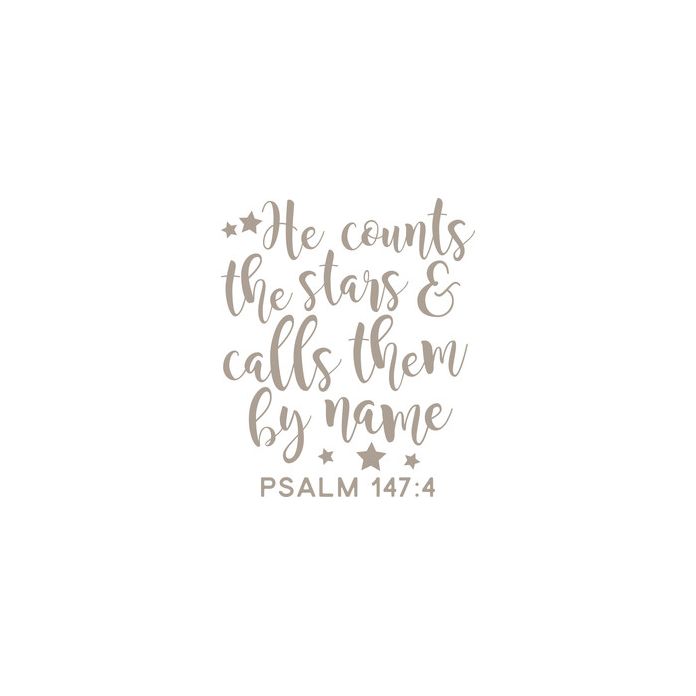 He counts
the stars &
calls them
by name
PSALM 147:4